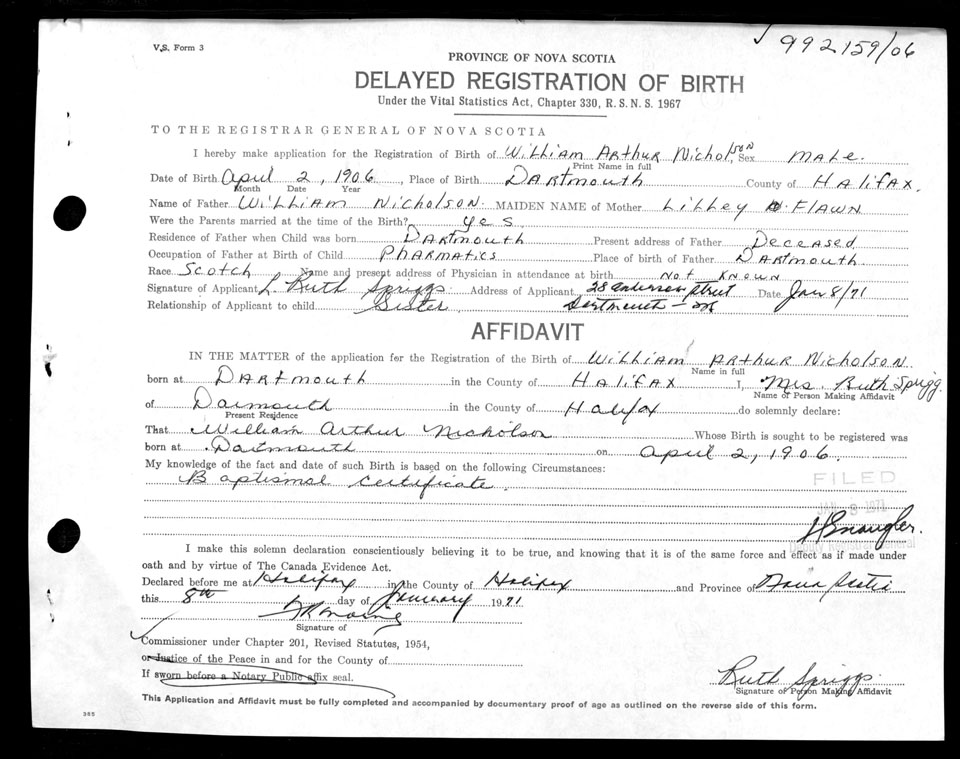 V.S. Form 3
✓ 992159/06
PROVINCE OF NOVA SCOTIA
DELAYED REGISTRATION OF BIRTH
Under the Vital Statistics Act, Chapter 330, R. S. N. S. 1967
TO THE REGISTRAR GENERAL OF NOVA SCOTIA
I hereby make application for the Registration of Birth of William Arthur Nicholson Sex Male.
Print Name in full
Date of Birth April 2, 1906, Place of Birth Dartmouth County of Halifax.
Month Date Year
Name of Father William Nicholson. MAIDEN NAME of Mother Lilley Flawn
Were the Parents married at the time of the Birth? Yes
Residence of Father when Child was born Dartmouth Present address of Father Deceased
Occupation of Father at Birth of Child Pharmatics Place of birth of Father Dartmouth.
Race Scotch Name and present address of Physician in attendance at birth Not Known
Signature of Applicant L. Ruth Spriggs Address of Applicant 28 Street Date Jan 8/71
Relationship of Applicant to child Sister Dartmouth - NS
AFFIDAVIT
IN THE MATTER of the application for the Registration of the Birth of William Arthur Nicholson
Name in full
born at Dartmouth in the County of Halifax I, Mrs. Ruth Sprigg.
Name of Person Making Affidavit
of Darmouth in the County of Halifax do solemnly declare:
Present Residence
That William Arthur Nicholson Whose Birth is sought to be registered was
born at Dartmouth on April 2, 1906.
My knowledge of the fact and date of such Birth is based on the following Circumstances:
Baptismal certificate.
FILED
JAN 8 1971
Deputy Registrar General
I make this solemn declaration conscientiously believing it to be true, and knowing that it is of the same force and effect as if made under
oath and by virtue of The Canada Evidence Act.
Declared before me at Halifax in the County of Halifax and Province of Nova Scotia
this 8th day of January 1971
Signature of
Commissioner under Chapter 201, Revised Statutes, 1954,
or Justice of the Peace in and for the County of
If sworn before a Notary Public affix seal.
Ruth Spriggs
Signature of Person Making Affidavit
This Application and Affidavit must be fully completed and accompanied by documentary proof of age as outlined on the reverse side of this form.
365